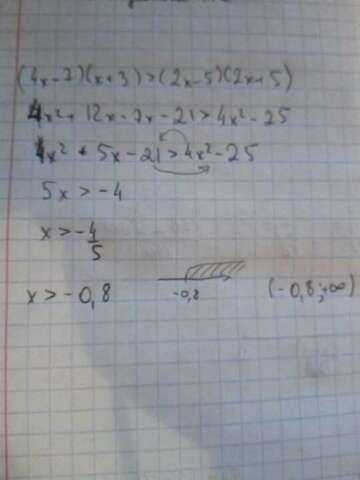 (4x-7)(x+3)>(2x-5)(2x+5)
4x²+12x-7x-21>4x²-25
4x²+5x-21>4x²-25
5x>-4
x>-4/5
x>-0,8 -0,8 (-0,8;+∞)